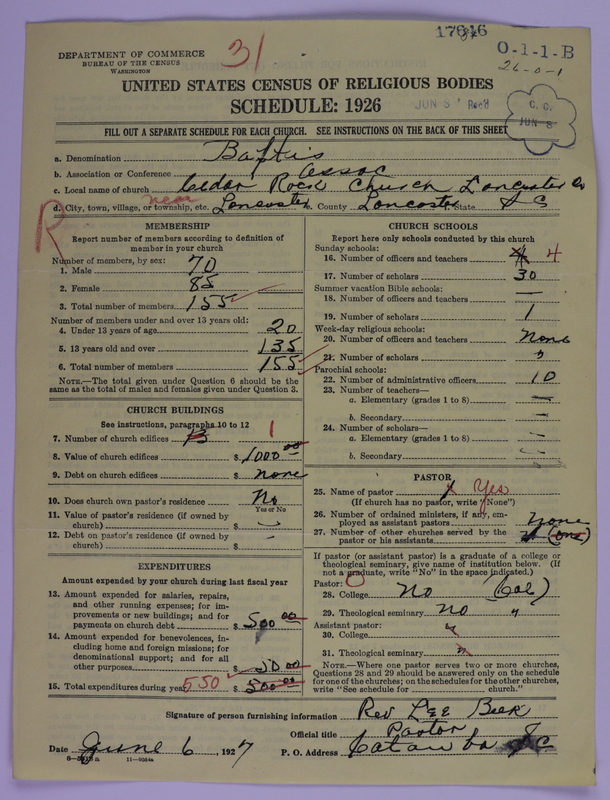 DEPARTMENT OF COMMERCE
BUREAU OF THE CENSUS
WASHINGTON
31
O-1-1-B
26-0-1
UNITED STATES CENSUS OF RELIGIOUS BODIES
SCHEDULE: 1926
C. C.
JUN 8
FILL OUT A SEPARATE SCHEDULE FOR EACH CHURCH. SEE INSTRUCTIONS ON THE BACK OF THIS SHEET
a. Denomination Baptis
b. Association or Conference Assoc
c. Local name of church Cedar Rock Church Lancaster Co
near
d. City, town, village, or township, etc. Lancaster e. County Lancaster State S C
R
MEMBERSHIP
Report number of members according to definition of member in your church
Number of members, by sex:
1. Male 70
2. Female 85
3. Total number of members 155
Number of members under and over 13 years old:
4. Under 13 years of age 20
5. 13 years old and over 135
6. Total number of members 155
NOTE.—The total given under Question 6 should be the same as the total of males and females given under Question 3.
CHURCH BUILDINGS
See instructions, paragraphs 10 to 12
7. Number of church edifices 1
8. Value of church edifices $ 1000 00
9. Debt on church edifices $ none
10. Does church own pastor's residence No
Yes or No
11. Value of pastor's residence (if owned by church) $
12. Debt on pastor's residence (if owned by church) $ -
EXPENDITURES
Amount expended by your church during last fiscal year
13. Amount expended for salaries, repairs, and other running expenses; for improvements or new buildings; and for payments on church debt $ 500 00
14. Amount expended for benevolences, including home and foreign missions; for denominational support; and for all other purposes $ 50 00
15. Total expenditures during year 550 $ 500 00
CHURCH SCHOOLS
Report here only schools conducted by this church
Sunday schools:
16. Number of officers and teachers 4
17. Number of scholars 30
Summer vacation Bible schools:
18. Number of officers and teachers —
19. Number of scholars 1
Week-day religious schools:
20. Number of officers and teachers None
21. Number of scholars "
Parochial schools:
22. Number of administrative officers 10
23. Number of teachers—
a. Elementary (grades 1 to 8) —
b. Secondary —
24. Number of scholars—
a. Elementary (grades 1 to 8)
b. Secondary
PASTOR
25. Name of pastor Yes
(If church has no pastor, write "None")
26. Number of ordained ministers, if any, employed as assistant pastors none
27. Number of other churches served by the pastor or his assistants (one)
If pastor (or assistant pastor) is a graduate of a college or theological seminary, give name of institution below. (If not a graduate, write "No" in the space indicated.)
Pastor:
28. College No (Col)
29. Theological seminary No "
Assistant pastor:
30. College
31. Theological seminary
NOTE.—Where one pastor serves two or more churches, Questions 28 and 29 should be answered only on the schedule for one of the churches; on the schedules for the other churches, write "See schedule for church."
Signature of person furnishing information Rev Lee Beek
Official title Pastor
Date June 6, 1927 P. O. Address Catawba S C